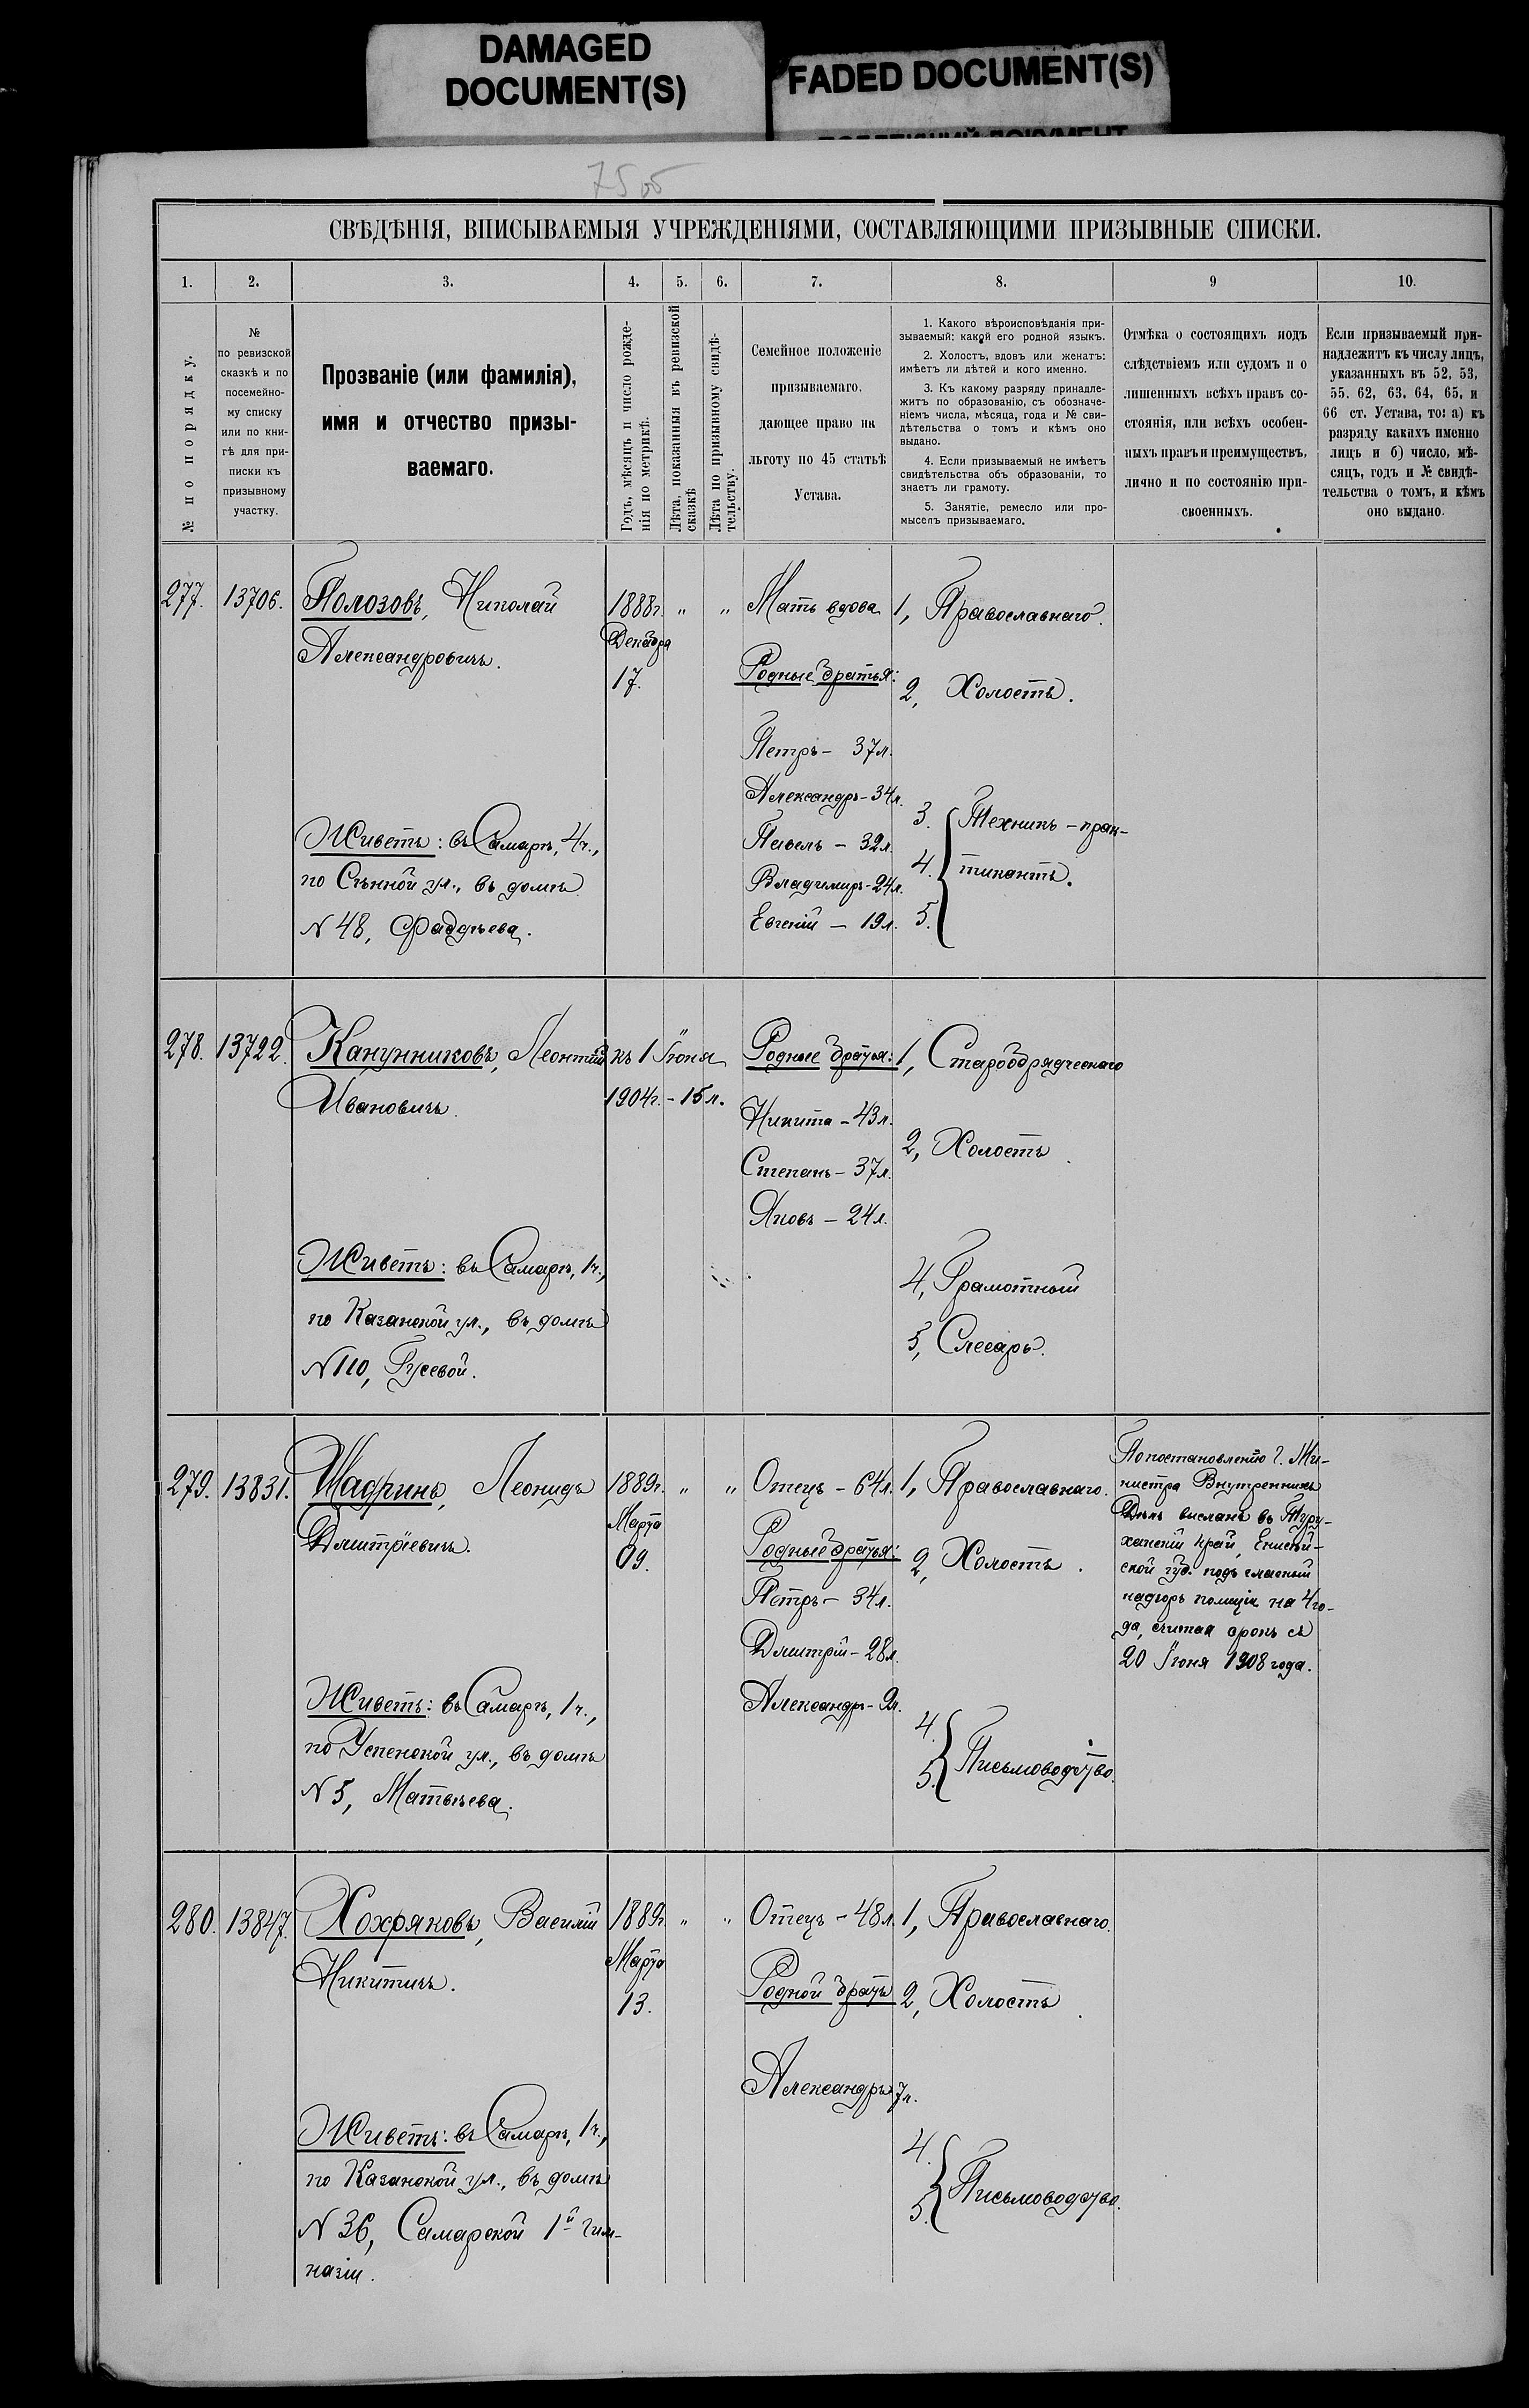 DAMAGED
DOCUMENT(S)
FADED DOCUMENT(S)
СВѢДѢНІЯ, ВПИСЫВАЕМЫЯ УЧРЕЖДЕНІЯМИ, СОСТАВЛЯЮЩИМИ ПРИЗЫВНЫЕ СПИСКИ.
1.
2.
3.
4.
5.
6.
7.
8.
9
10.
№ по порядку.
№
по ревизской
сказкѣ и по
посемейно-
му списку
или по кни-
гѣ для при-
писки къ
призывному
участку.
Прозваніе (или фамилія),
имя и отчество призы-
ваемаго.
Годъ, мѣсяцъ и число рожде-
нія по метрикѣ.
Лѣта, показанныя въ ревизской
сказкѣ
Лѣта по призывному свидѣ-
тельству.
Семейное положеніе
призываемаго,
дающее право на
льготу по 45 статьѣ
Устава.
1. Какого вѣроисповѣданія при-
зываемый: какой его родной языкъ.
2. Холостъ, вдовъ или женатъ:
имѣетъ ли дѣтей и кого именно.
3. Къ какому разряду принадле-
житъ по образованію, съ обозначе-
ніемъ числа, мѣсяца, года и № сви-
дѣтельства о томъ и кѣмъ оно
выдано.
4. Если призываемый не имѣетъ
свидѣтельства объ образованіи, то
знаетъ ли грамоту.
5. Занятіе, ремесло или про-
мыселъ призываемаго.
Отмѣка о состоящихъ подъ
слѣдствіемъ или судомъ и о
лишенныхъ всѣхъ правъ со-
стоянія, или всѣхъ особен-
ныхъ правъ и преимуществъ,
лично и по состоянію при-
своенныхъ.
Если призываемый при-
надлежитъ къ числу лицъ,
указанныхъ въ 52, 53,
55, 62, 63, 64, 65, и
66 ст. Устава, то: а) къ
разряду какихъ именно
лицъ и б) число, мѣ-
сяцъ, годъ и № свидѣ-
тельства о томъ, и кѣмъ
оно выдано.
277.
13706.
Полозовъ, Николай
Александровичъ.
Живетъ: въ Самарѣ, 4ч.,
по Сѣнной ул., въ домѣ
N 48, Фаддѣева.
1888г.
Декабря
17.
"
"
Мать вдова
Родные братья:
Петръ – 37л.
Александръ – 34л.
Павелъ – 32л.
Владимиръ – 24л.
Евгеній – 19л.
1, Православнаго.
2, Холостъ.
3.
4.
5.
Техникъ – прак-
тикантъ.
278.
13722.
Канунниковъ, Леонтій
Ивановичъ.
Живетъ: въ Самарѣ, 1ч.,
по Казанской ул., въ домѣ
N 110, Гусевой.
къ 1 Іюня
1904г. – 15 л.
Родные братья:
Никита – 43л.
Степанъ – 37л.
Яковъ – 24л.
1, Старообрядческаго
2, Холостъ.
4, Грамотный
5, Слесарь.
279.
13831.
Шадринъ, Леонидъ
Дмитріевичъ.
Живетъ: въ Самарѣ, 1ч.,
по Успенской ул., въ домѣ
N 5, Матвѣева.
1889г.
Марта
09.
"
"
Отецъ – 64л.
Родные братья:
Петръ – 34л.
Дмитрій – 28л.
Александръ – 9л.
1, Православнаго.
2, Холостъ.
4.
5.
Письмоводство.
По постановленію Г. Ми-
нистра Внутреннихъ
Дѣлъ высланъ въ Туру-
ханскій край, Енисей-
ской губ. подъ гласный
надзоръ полиціи на 4 го-
да, считая срокъ съ
20 Іюня 1908 года.
280.
13847.
Хохряковъ, Василій
Никитичъ.
Живетъ: въ Самарѣ, 1ч.,
по Казанской ул., въ домѣ
N 36, Самарской 1й гим-
назіи.
1889г.
Марта
13.
"
"
Отецъ – 48л.
Родной братъ
Александръ 7л.
1, Православнаго.
2, Холостъ.
4.
5.
Письмоводство.